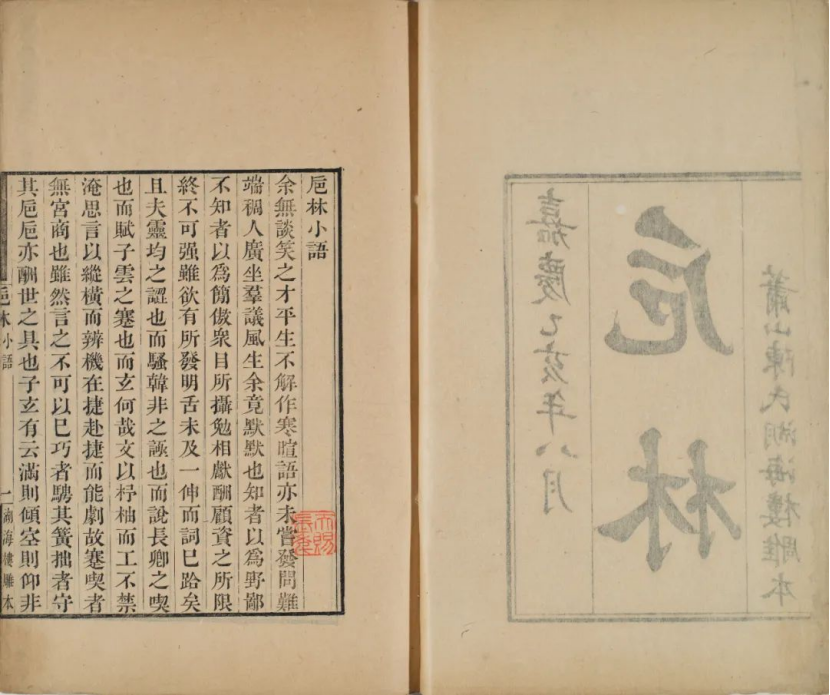 嘉慶乙亥年八月
卮林
蕭山陳氏湖海樓雕本
巵林小語
余無談笑之才平生不解作寒暄語亦未嘗發問難
端稠人廣坐羣議風生余竟默默也知者以為野鄙
不知者以為簡傲衆目所攝勉相獻酬顧資之所限
終不可强雖欲有所發明舌未及一伸而詞巳跲矣
且夫靈均之譅也而騷韓非之諑也而說長卿之喫
也而賦子雲之蹇也而玄何哉文以杼柚而工不禁
淹思言以縱橫而辨機在捷赴捷而能劇故蹇喫者
無宮商也雖然言之不可以巳巧者騁其簧拙者守
其巵巵亦酬世之具也子玄有云滿則傾空則仰非
巵林小語 一 湖海樓雕本